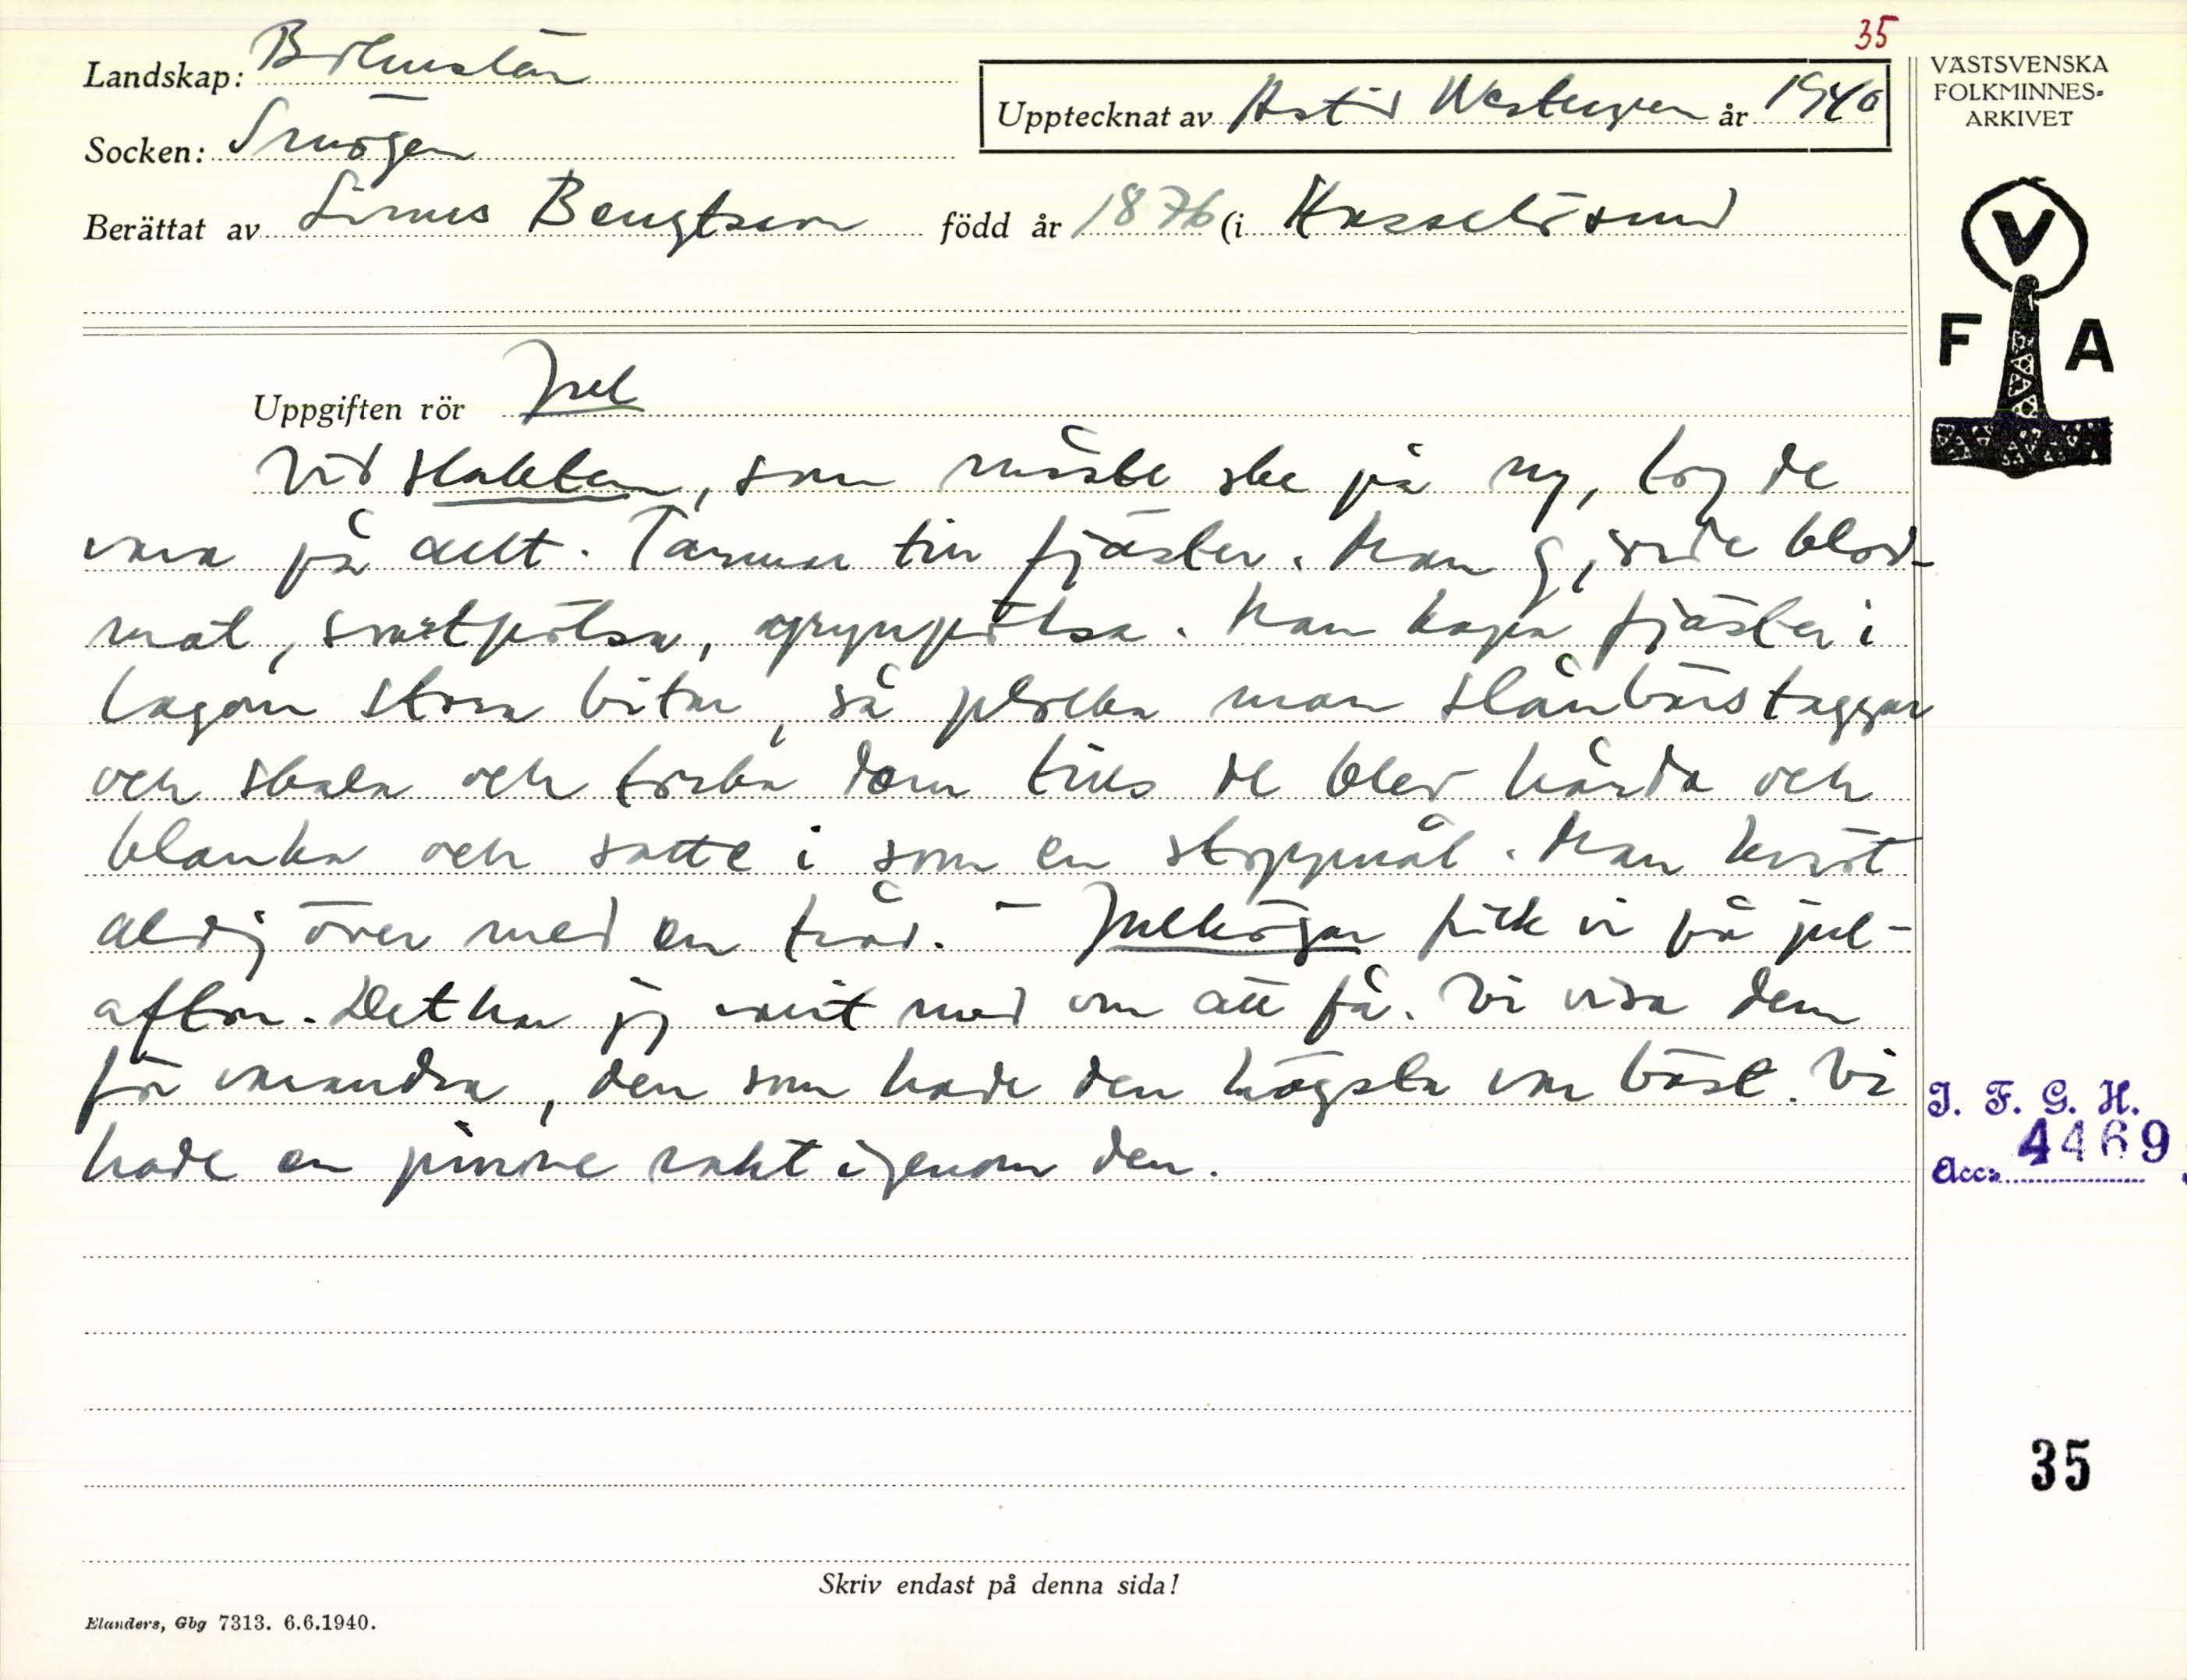 35
Landskap: Bohuslän
Socken: Smögen
Upptecknat av Astrid Westergren år 1940
Berättat av Linus Bengtsson född år 1876 (i Hasselösund
Uppgiften rör Jul
Vid slakten, som måste ske på ny, tog de
vara på allt. Tarmar till fjälster. Man gjorde blod-
mat, svartpölsa, grynpölsa. Man kapa fjälster i
lagom stora bitar, så plocka man slånbärstaggar
och skala och torka dom tills de blev hårda och
blanka och satte i som en stoppnål. Man knöt
aldrig över med en tråd. - Julhögar fick vi på jul-
afton. Det har jag varit med om att få. Vi visa dem
för varandra, den som hade den högsta var bäst. Vi
hade en pinne rakt igenom den.
Skriv endast på denna sida!
Elanders, Gbg 7313. 6.6.1940.
VÄSTSVENSKA
FOLKMINNES-
ARKIVET
V
F A
I. F. G. H.
4469
Acc:
35